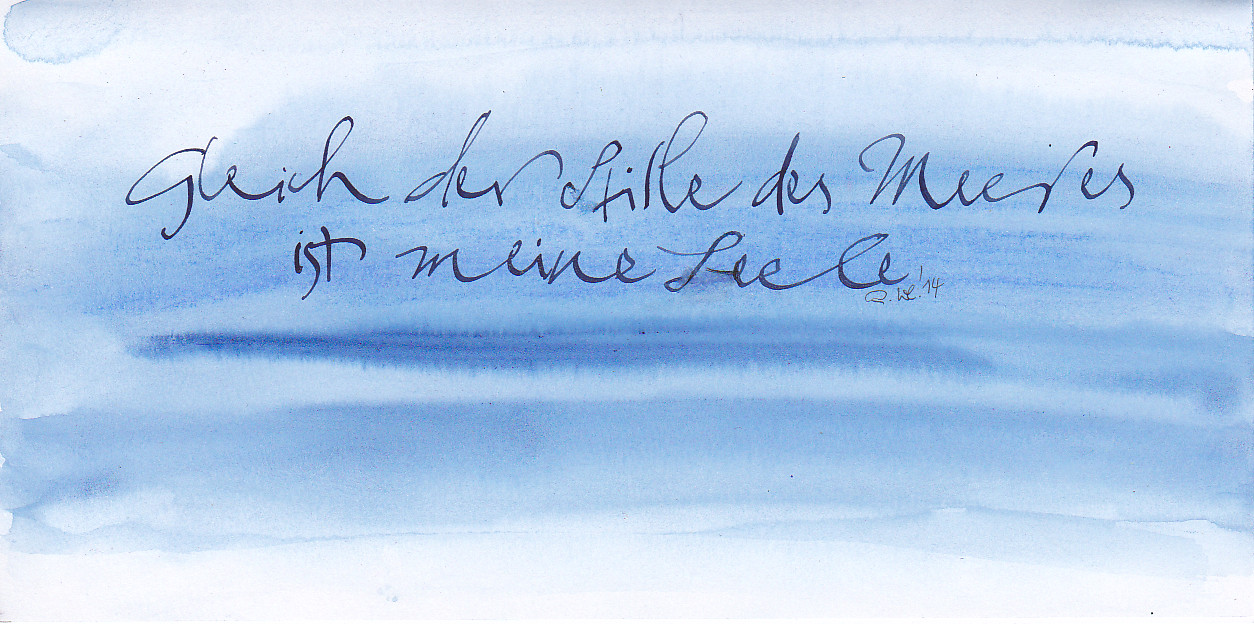 Gleich der Stille des Meeres
ist meine Seele
'14